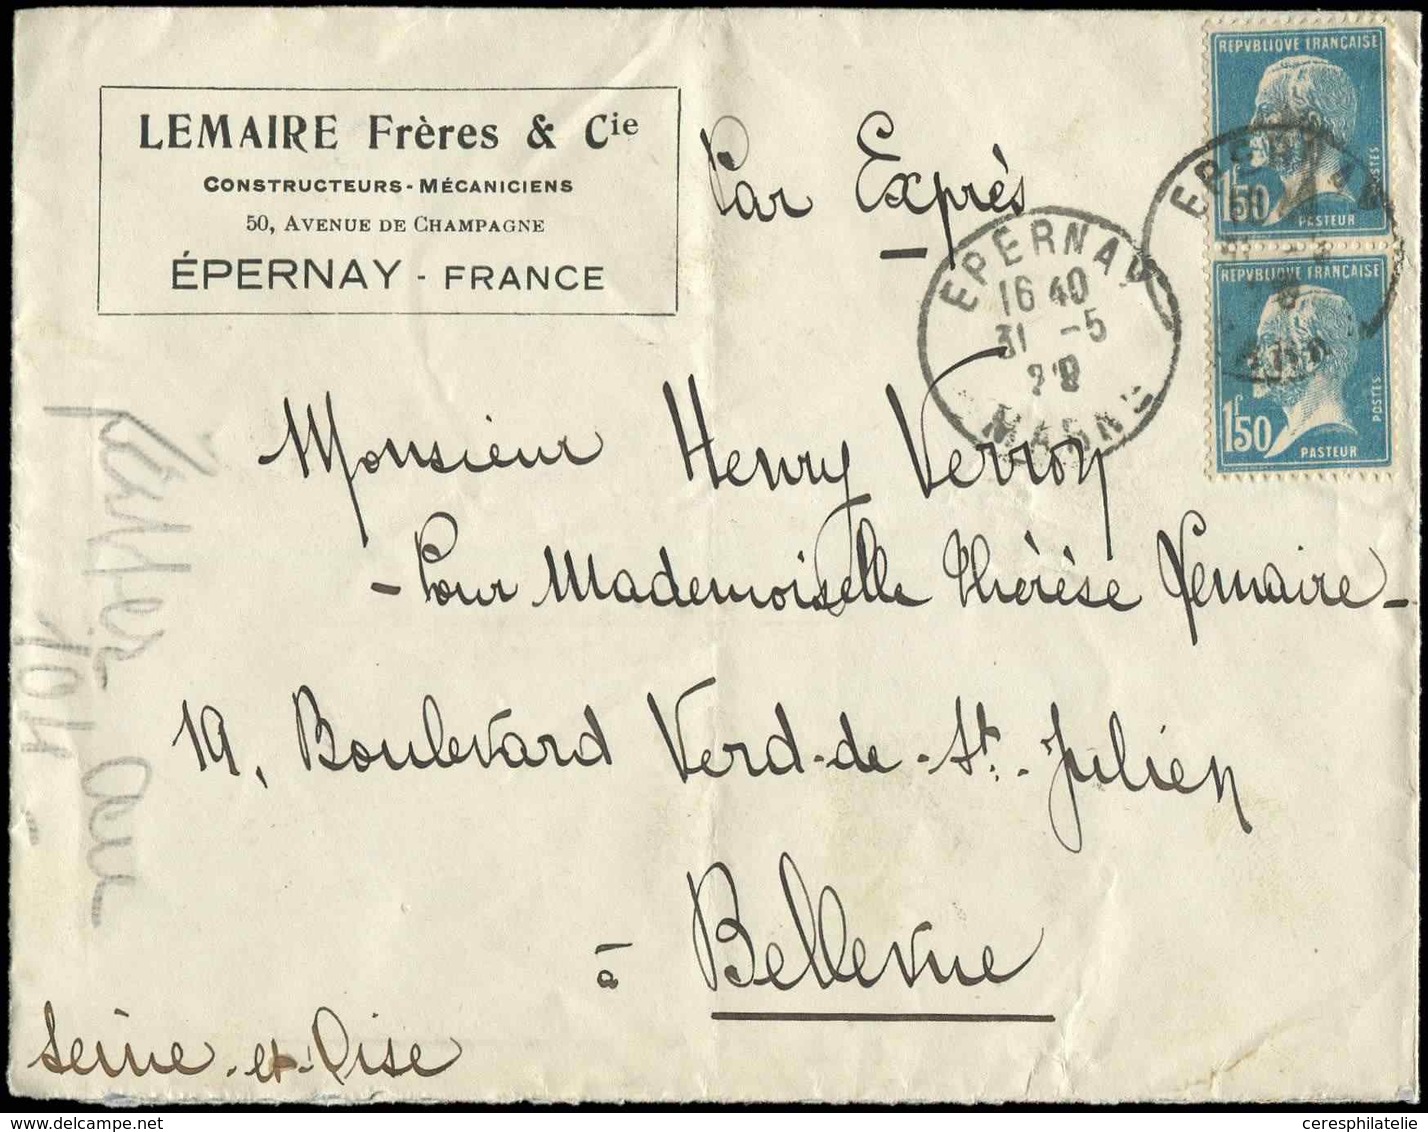 LEMAIRE Frères & Cie
CONSTRUCTEURS-MÉCANICIENS
50, AVENUE DE CHAMPAGNE
ÉPERNAY - FRANCE
Par Exprès
REPVBLIQVE FRANÇAISE
1f50
POSTES
PASTEUR
REPVBLIQVE FRANÇAISE
1f50
POSTES
PASTEUR
EPERNAY
EPERNAY
16 40
31 -5
MARNE
Monsieur Henry Verron
- Pour Mademoiselle Thérèse Lemaire -
19, Boulevard Verd-de-St. Julien
à Bellevue
Seine-et-Oise
ceresphilatelie